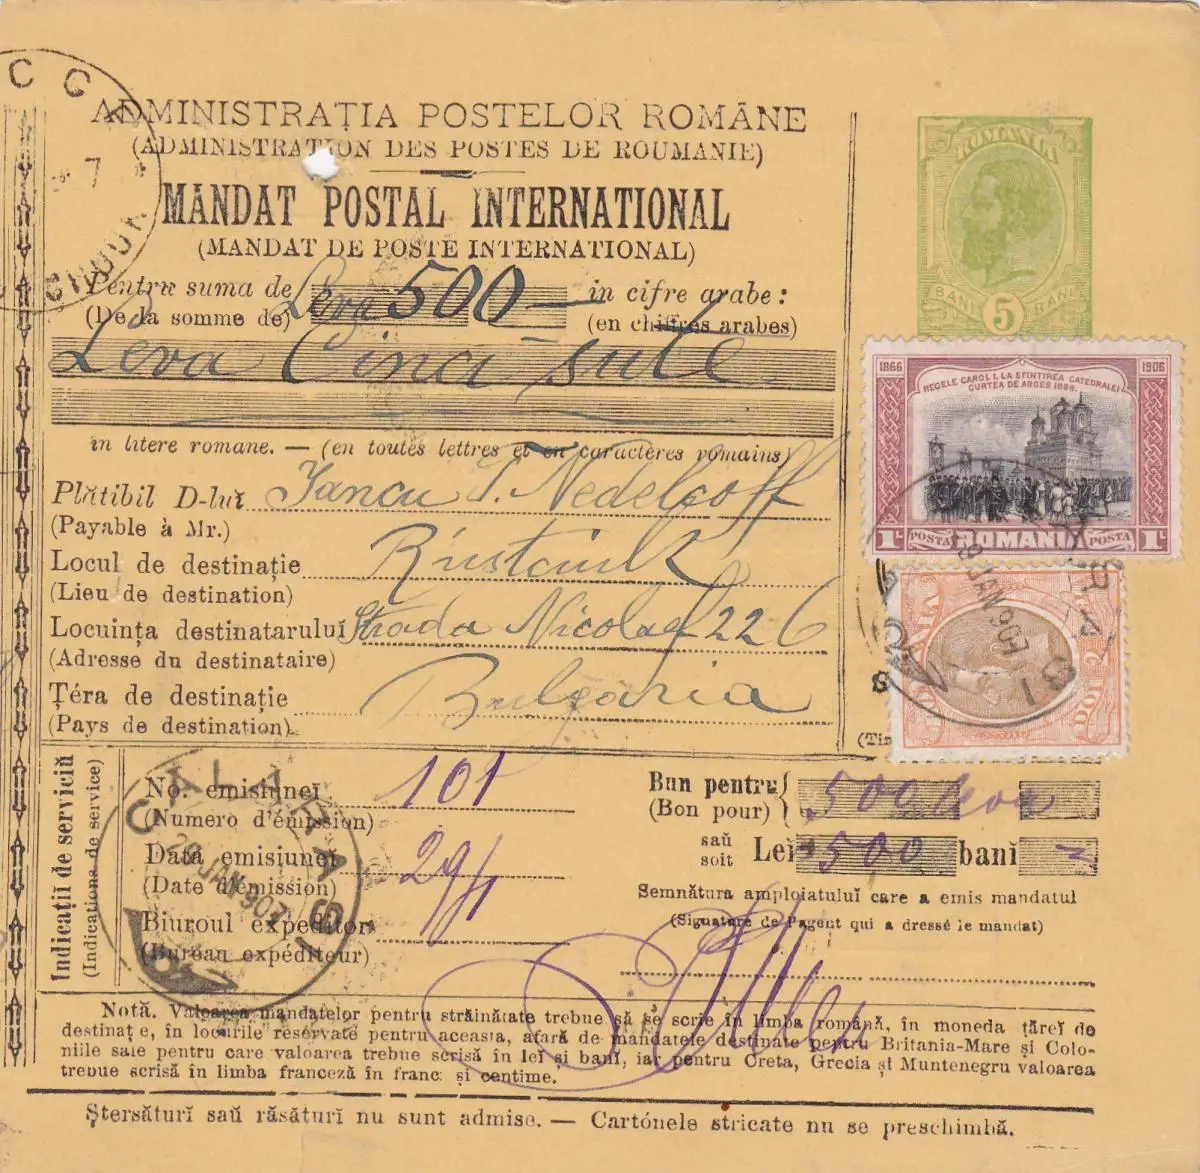 ADMINISTRAȚIA POSTELOR ROMÂNE
(ADMINISTRATION DES POSTES DE ROUMANIE)
MANDAT POSTAL INTERNATIONAL
(MANDAT DE POSTE INTERNATIONAL)
Pentru suma de Leva 500 — in cifre arabe :
(De la somme de) (en chiffres arabes)
Leva Cinci sute
in litere romane. — (en toutes lettres et en caractères romains)
Plătibil D-luĭ Iancu T. Nedelcoff
(Payable à Mr.)
Locul de destinație Rustciuk
(Lieu de destination)
Locuința destinataruluĭ Strada Nicolae 226
(Adresse du destinataire)
Țéra de destinație Bulgaria
(Pays de destination)
ROMANIA
BANI 5 BANI
1866 1906
REGELE CAROL I, LA SFINTIREA CATEDRALEI
CURTEA DE ARGES 1886.
1L POSTA ROMANIA POSTA 1L
DOI 2
CALARASI
29 JAN 907
Indicațiĭ de serviciŭ
(Indications de service)
No. emisiuneĭ 101
(Numero d'émission)
Data emisiuneĭ 29/1
(Date d'émission)
Biuroul expeditor
(Bureau expéditeur)
Bun pentru 500 leva
(Bon pour)
saŭ
soit
Leĭ 500 banĭ
Semnătura amploiatuluĭ care a emis mandatul
(Signature de l'agent qui a dressé le mandat)
Notă. Valoarea mandatelor pentru străinătate trebue să se scrie în limba română, în moneda țăreĭ de
destinație, în locurile reservate pentru aceasta, afară de mandatele destinate pentru Britania-Mare și Colo-
niile sale pentru care valoarea trebue scrisă în leĭ și banĭ, iar pentru Creta, Grecia și Muntenegru valoarea
trebue scrisă în limba franceză în francĭ și centime.
Ștersăturĭ saŭ răsăturĭ nu sunt admise. — Cartónele stricate nu se preschimbă.